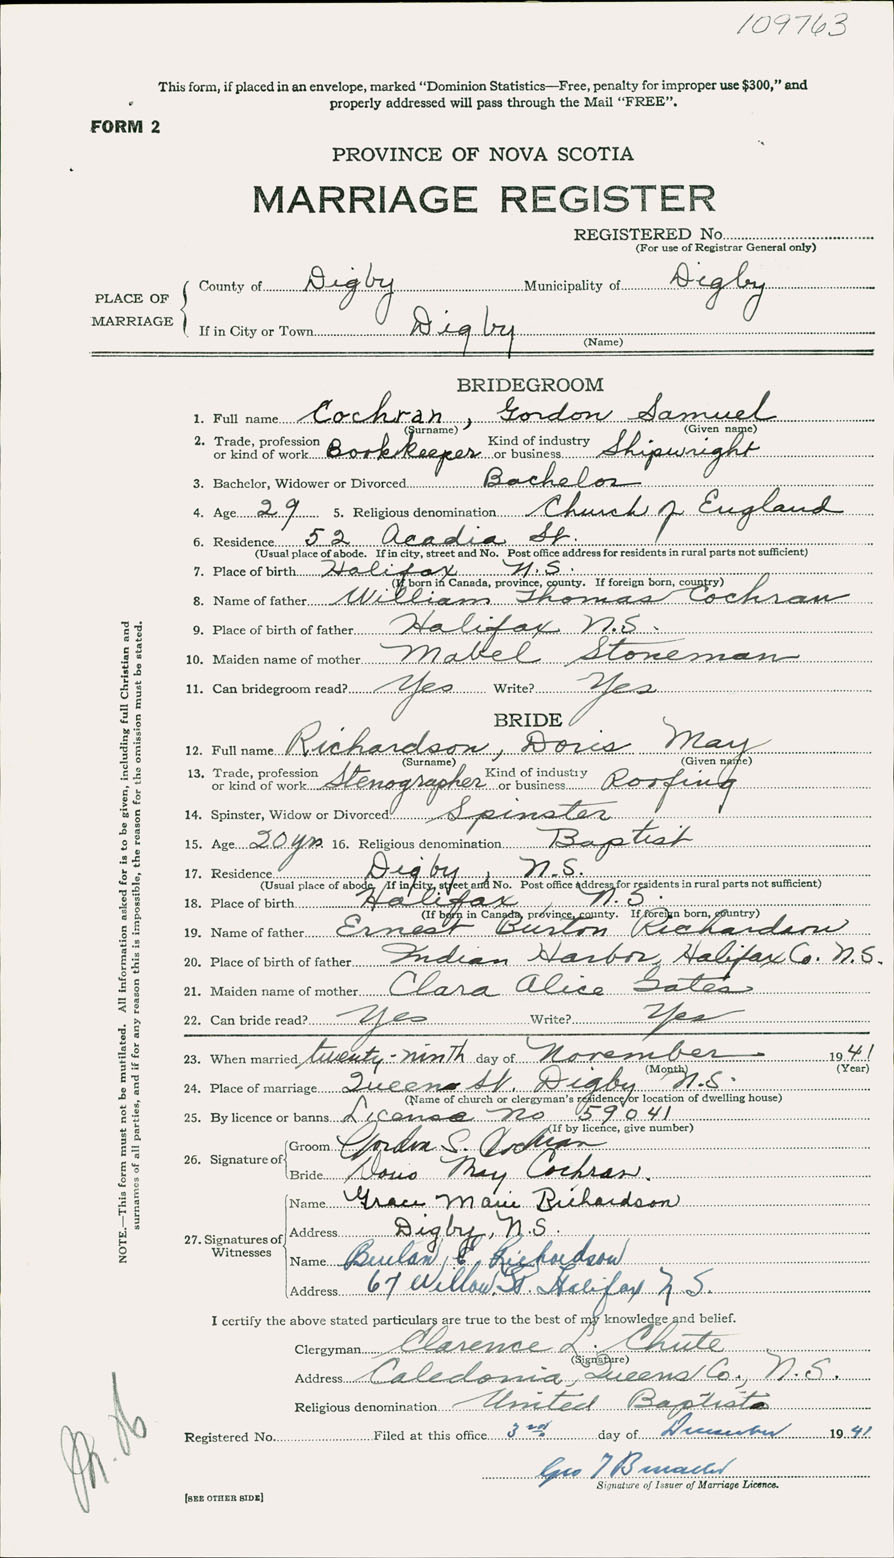 109763
This form, if placed in an envelope, marked “Dominion Statistics—Free, penalty for improper use $300,” and
properly addressed will pass through the Mail “FREE”.
FORM 2
PROVINCE OF NOVA SCOTIA
MARRIAGE REGISTER
REGISTERED No.
(For use of Registrar General only)
PLACE OF MARRIAGE
County of Digby Municipality of Digby
If in City or Town Digby
(Name)
BRIDEGROOM
1. Full name Cochran, Gordon Samuel
(Surname) (Given name)
2. Trade, profession or kind of work Bookkeeper Kind of industry or business Shipwright
3. Bachelor, Widower or Divorced Bachelor
4. Age 29 5. Religious denomination Church of England
6. Residence 52 Acadia St.
(Usual place of abode. If in city, street and No. Post office address for residents in rural parts not sufficient)
7. Place of birth Halifax N.S.
(If born in Canada, province, county. If foreign born, country)
8. Name of father William Thomas Cochran
9. Place of birth of father Halifax N.S.
10. Maiden name of mother Mabel Stoneman
11. Can bridegroom read? Yes Write? Yes
BRIDE
12. Full name Richardson, Doris May
(Surname) (Given name)
13. Trade, profession or kind of work Stenographer Kind of industry or business Roofing
14. Spinster, Widow or Divorced Spinster
15. Age 20 yrs 16. Religious denomination Baptist
17. Residence Digby, N.S.
(Usual place of abode. If in city, street and No. Post office address for residents in rural parts not sufficient)
18. Place of birth Halifax, N.S.
(If born in Canada, province, county. If foreign born, country)
19. Name of father Ernest Burton Richardson
20. Place of birth of father Indian Harbor, Halifax Co. N.S.
21. Maiden name of mother Clara Alice Gates
22. Can bride read? Yes Write? Yes
23. When married twenty-ninth day of November 1941
(Month) (Year)
24. Place of marriage Queen St. Digby N.S.
(Name of church or clergyman's residence or location of dwelling house)
25. By licence or banns License No 59041
(If by licence, give number)
26. Signature of
Groom Gordon S. Cochran
Bride Doris May Cochran.
27. Signatures of Witnesses
Name Grace Marie Richardson
Address Digby, N.S.
Name E. Richardson
Address 67 Willow St. Halifax N.S.
I certify the above stated particulars are true to the best of my knowledge and belief.
Clergyman Clarence L. Chute
(Signature)
Address Caledonia, Queens Co., N.S.
Religious denomination United Baptist
Registered No. Filed at this office 3rd day of December 1941
Geo T
Signature of Issuer of Marriage Licence.
[SEE OTHER SIDE]
NOTE.—This form must not be mutilated. All information asked for is to be given, including full Christian and
surnames of all parties, and if for any reason this is impossible, the reason for the omission must be stated.